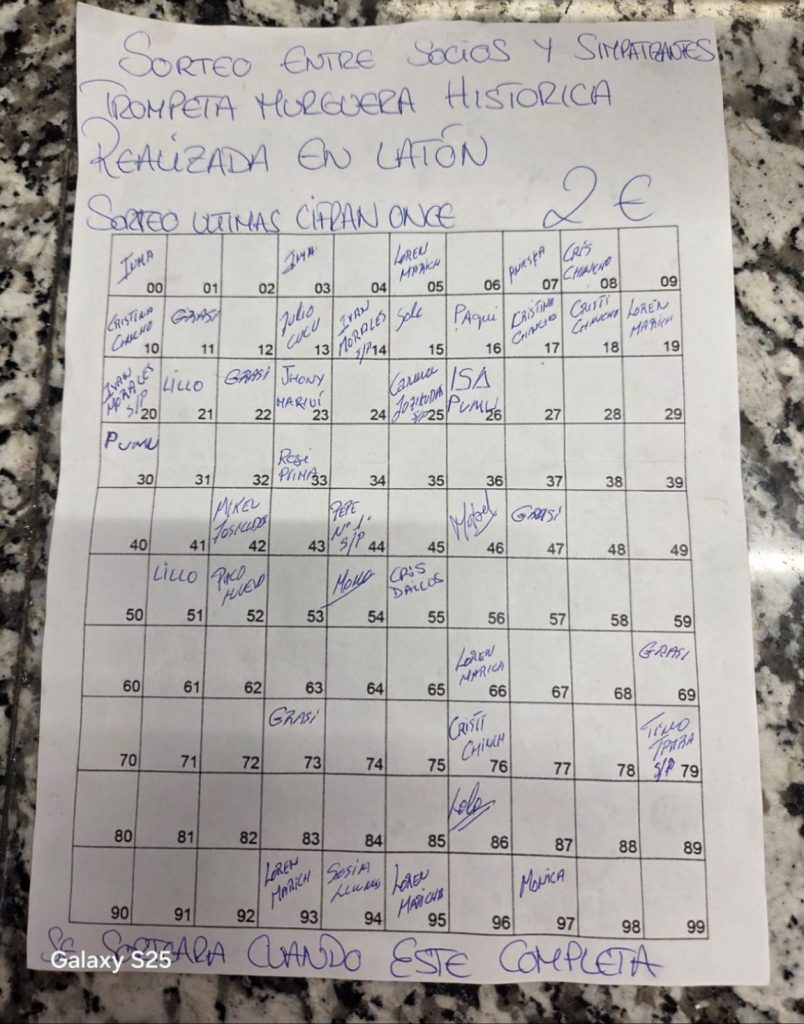 SORTEO ENTRE SOCIOS Y SIMPATIZANTES
TROMPETA MURGUERA HISTORICA
REALIZADA EN LATÓN
SORTEO ULTIMAS CIFRAN ONCE 2 €
INMA 00 01 02 INMA 03 04 LOREN MARICH 05 06 07 CRIS CHINCHO 08 09
CRISTINA CHINCHO 10 GRASI 11 12 JULIO CUCU 13 IVAN MORALES S/P 14 Sole 15 PAQUI 16 CRISTINA CHINCHO 17 CRISTI CHINCHO 18 LOREN MARICH 19
IVAN MORALES S/P 20 LILLO 21 GRASI 22 JHONY 23 24 Carmen S/P 25 ISA PUMU 26 27 28 29
PUMU 30 31 32 33 34 35 36 37 38 39
40 41 MIKEL 42 43 PEPE Nº 1 S/P 44 45 46 GRASI 47 48 49
50 LILLO 51 PACO 52 53 54 CRIS 55 56 57 58 59
60 61 62 63 64 65 LOREN MARICH 66 67 68 GRASI 69
70 71 72 GRASI 73 74 75 CRISTI CHINCH 76 77 78 S/P 79
80 81 82 83 84 85 Lola 86 87 88 89
90 91 92 LOREN MARICH 93 94 LOREN 95 96 MONICA 97 98 99
SE SORTEARA CUANDO ESTE COMPLETA
Galaxy S25